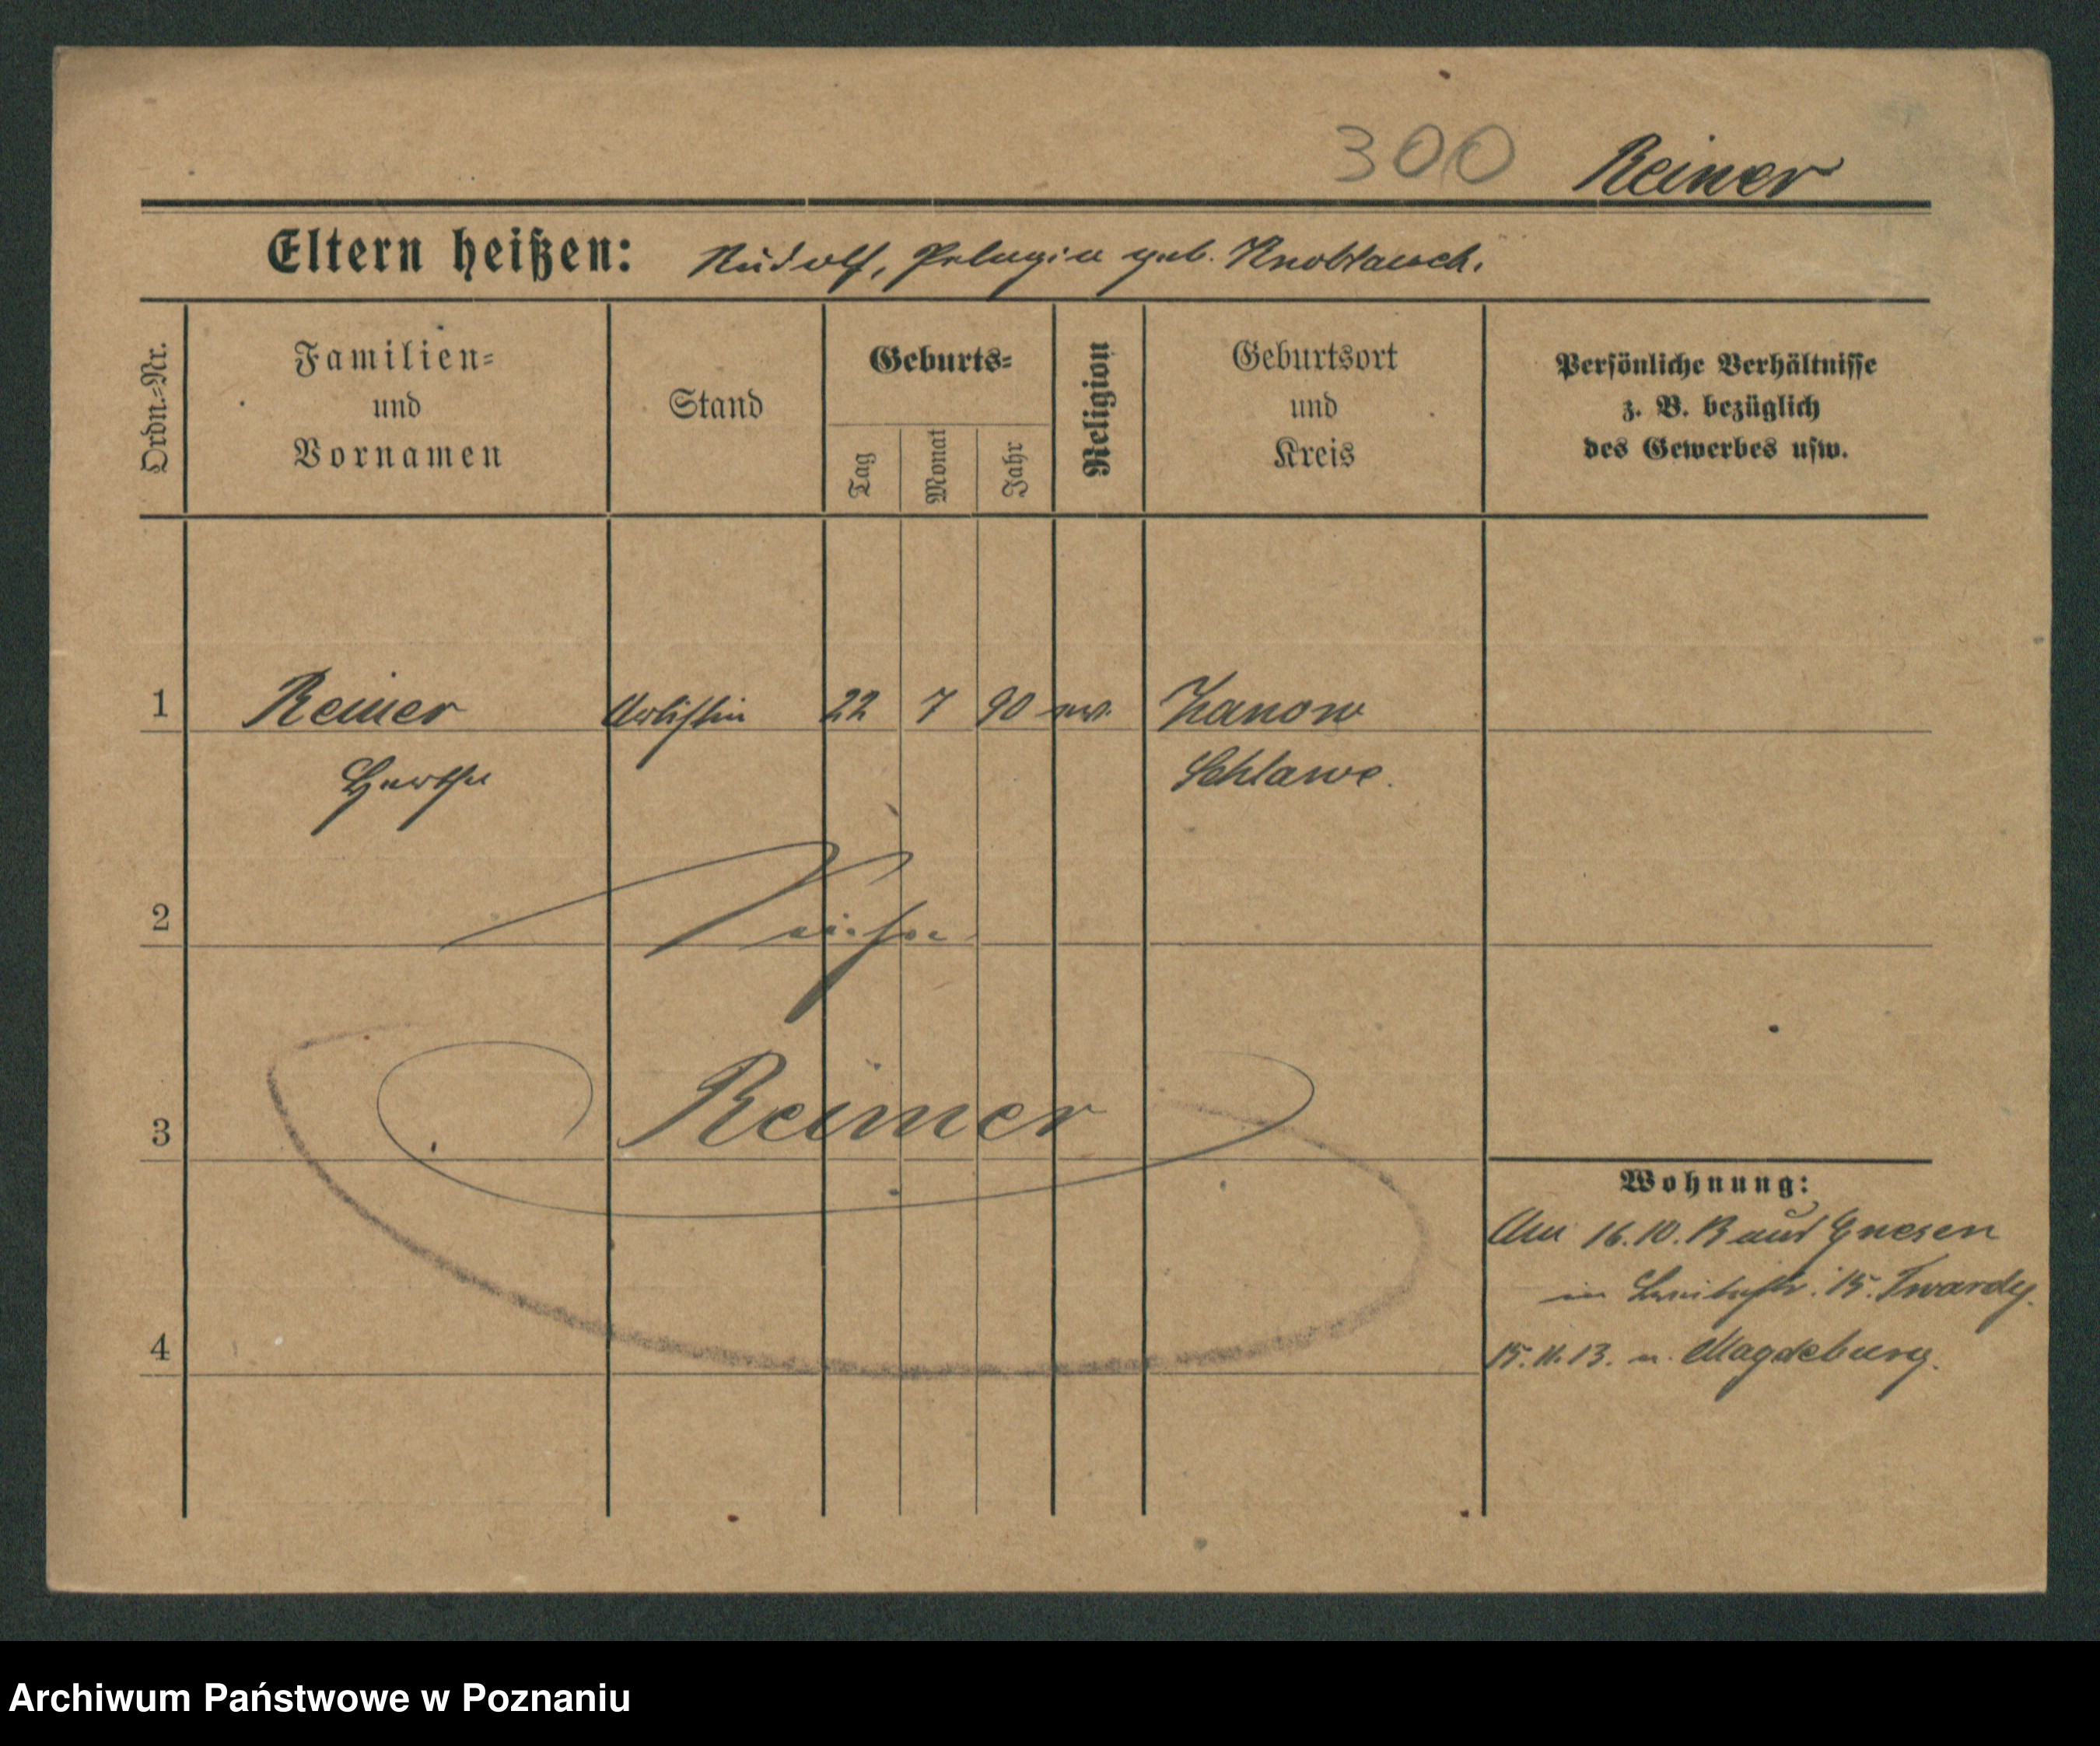 300 Reiner
Eltern heißen: Rudolf, Pelagia geb. Knoblauch.
Ordn.-Nr.
Familien-
und
Vornamen
Stand
Geburts-
Tag
Monat
Jahr
Religion
Geburtsort
und
Kreis
Persönliche Verhältnisse
z. B. bezüglich
des Gewerbes usw.
1 Reiner Artistin 22 7 90 ev. Zanow
Hertha Schlawe.
2 Siehe
3 Reimer
Wohnung:
16.10.13 aus Gnesen
in 15. Twardy.
4 15.11.13. n. Magdeburg.
Archiwum Państwowe w Poznaniu